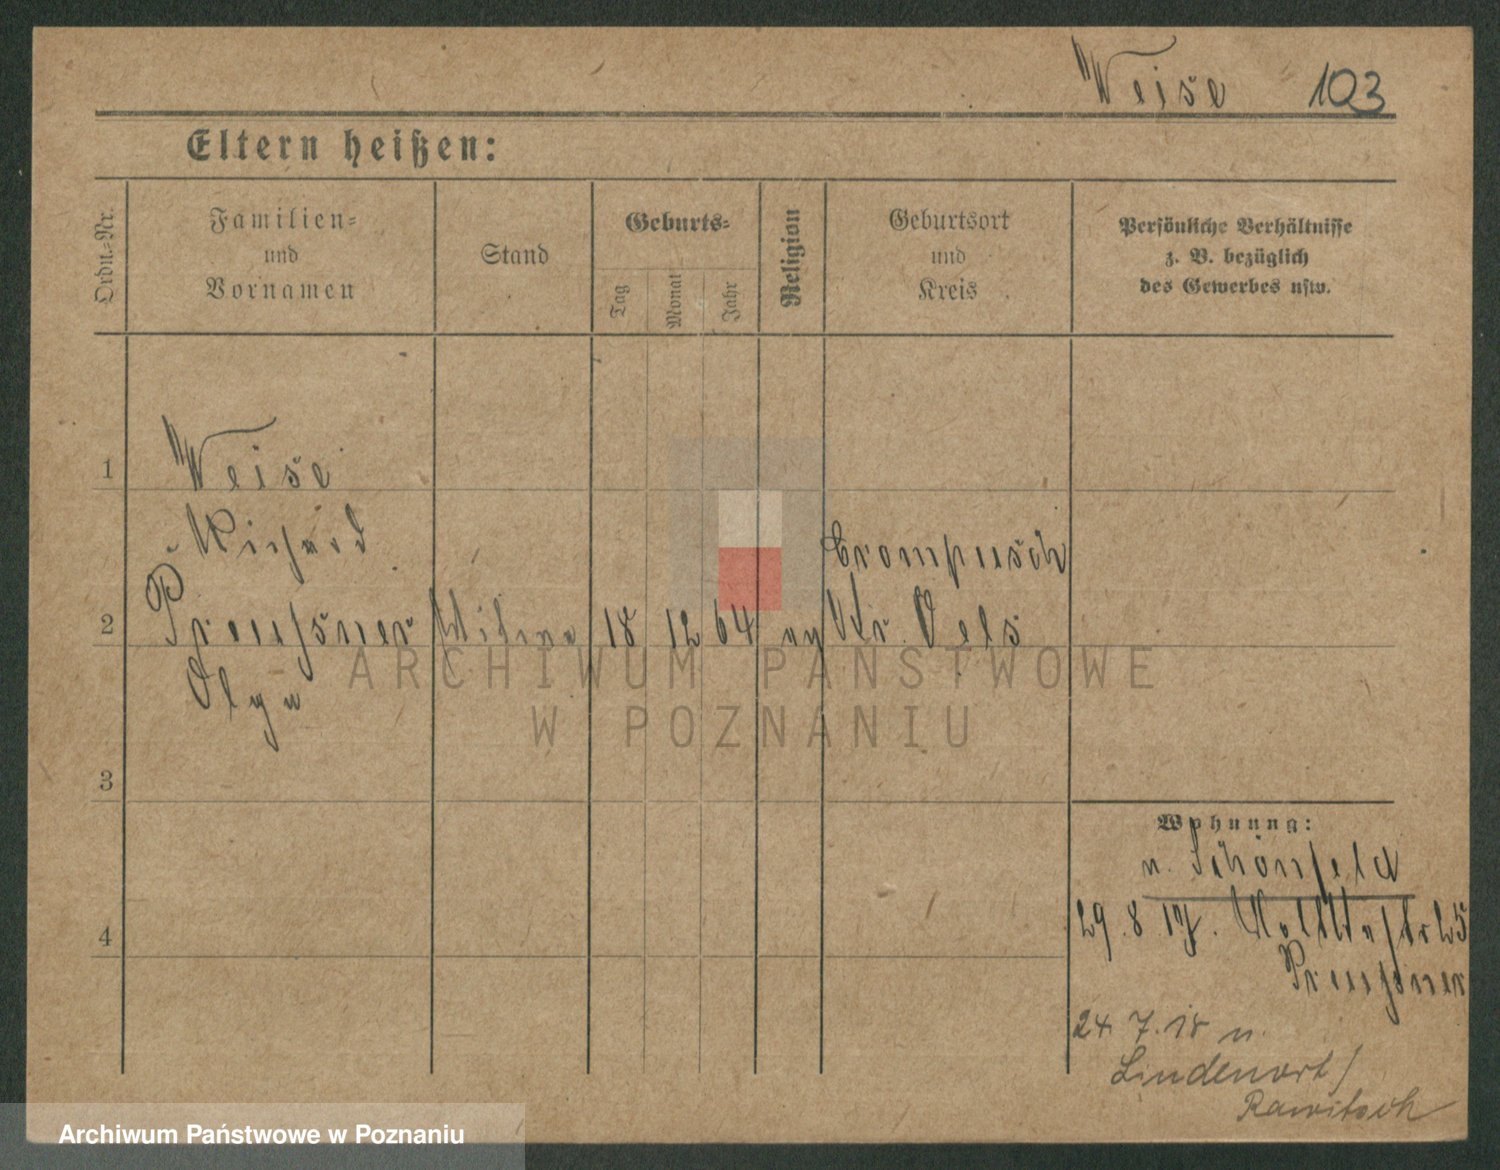 Weise 103
Eltern heißen:
Ordn.=Nr.
Familien=
und
Vornamen
Stand
Geburts=
Tag
Monat
Jahr
Religion
Geburtsort
und
Kreis
Persönliche Verhältnisse
z. B. bezüglich
des Gewerbes usw.
1
Weise
Richard
2
Preussner
Olga
Witwe
18 12 64
ev
Kr. Oels
3
4
Wohnung:
n. Schönfeld
29. 8 17.
25
Preussner
24. 7. 18 n.
Lindenort/
Rawitsch
ARCHIWUM PAŃSTWOWE
W POZNANIU
Archiwum Państwowe w Poznaniu